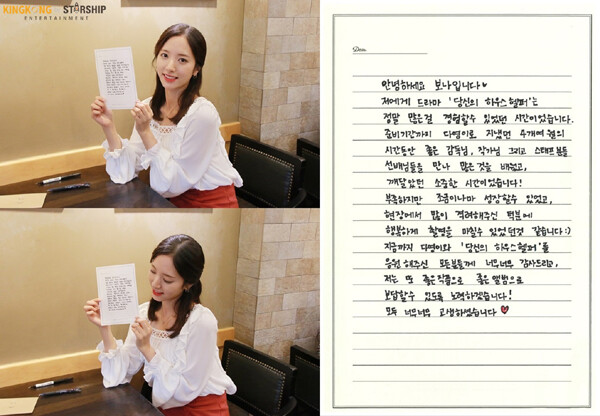 KINGKONG by STARSHIP
ENTERTAINMENT
Dear.
안녕하세요 보나입니다♥
저에게 드라마 '당신의 하우스헬퍼'는
정말 많은걸 경험할수 있었던 시간이었습니다.
준비기간까지 다영이로 지냈던 수개월의
시간동안 좋은 감독님, 작가님 그리고 스태프분들
선배님들을 만나 많은것을 배웠고,
깨달았던 소중한 시간이었습니다!
부족하지만 조금이나마 성장할수 있었고,
현장에서 많이 격려해주신 덕분에
행복하게 촬영을 마칠수 있었던것 같습니다 :)
지금까지 다영이와 '당신의 하우스헬퍼'를
응원해주신 모든분들께 너무너무 감사드리고,
저는 또 좋은작품으로 좋은앨범으로
보답할수 있도록 노력하겠습니다!
모두 너무너무 고생하셨습니다♥